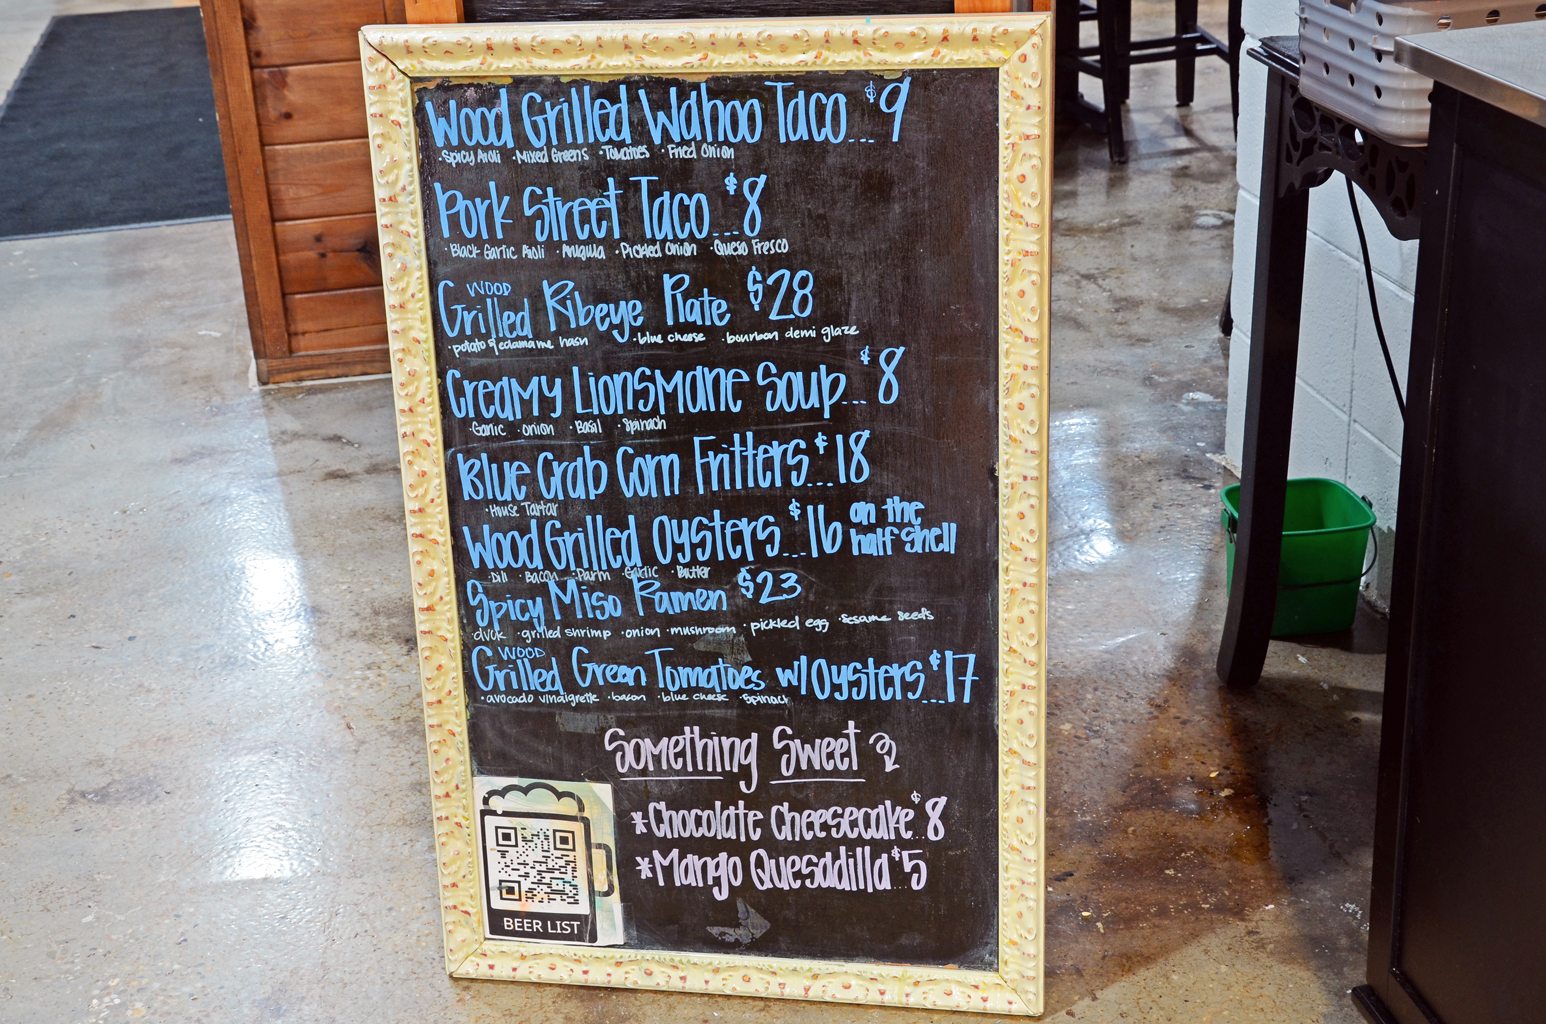 Wood Grilled Wahoo Taco...$9
·Spicy Aioli ·Mixed Greens ·Tomatoes ·Fried Onion
Pork Street Taco...$8
·Black Garlic Aioli ·Arugula ·Pickled Onion ·Queso Fresco
Wood Grilled Ribeye Plate $28
·potato & edamame hash ·blue cheese ·bourbon demi glaze
Creamy Lionsmane Soup...$8
·Garlic ·onion ·Basil ·Spinach
Blue Crab Corn Fritters...$18
·House Tartar
Wood Grilled Oysters...$16 on the half shell
·Dill ·Bacon ·Parm ·Garlic ·Butter
Spicy Miso Ramen $23
·grilled shrimp ·onion ·mushroom ·pickled egg ·Sesame Seeds
Wood Grilled Green Tomatoes w/ Oysters...$17
·avocado vinaigrette ·bacon ·blue cheese ·Spinach
Something Sweet
*Chocolate Cheesecake..$8
*Mango Quesadilla..$5
BEER LIST